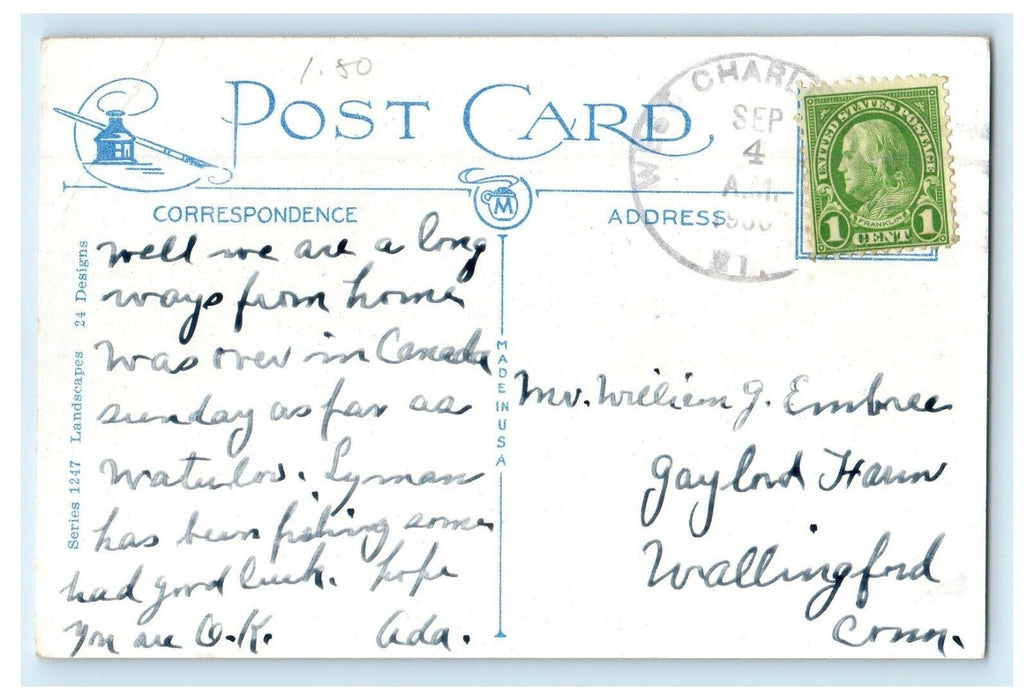 1.80
POST CARD
CHARL
SEP
4
A.M.
VT.
UNITED STATES POSTAGE
FRANKLIN
1 CENT 1
CORRESPONDENCE
M
ADDRESS
Well we are a long
ways from home
was over in Canada
sunday as far as
Waterloo. Lyman
has been fishing some
had good luck. hope
you are O.K. Ada.
Series 1247 Landscapes 24 Designs
MADE IN USA
Mr. William J. Embree
Gaylord Farm
Wallingford
Conn.